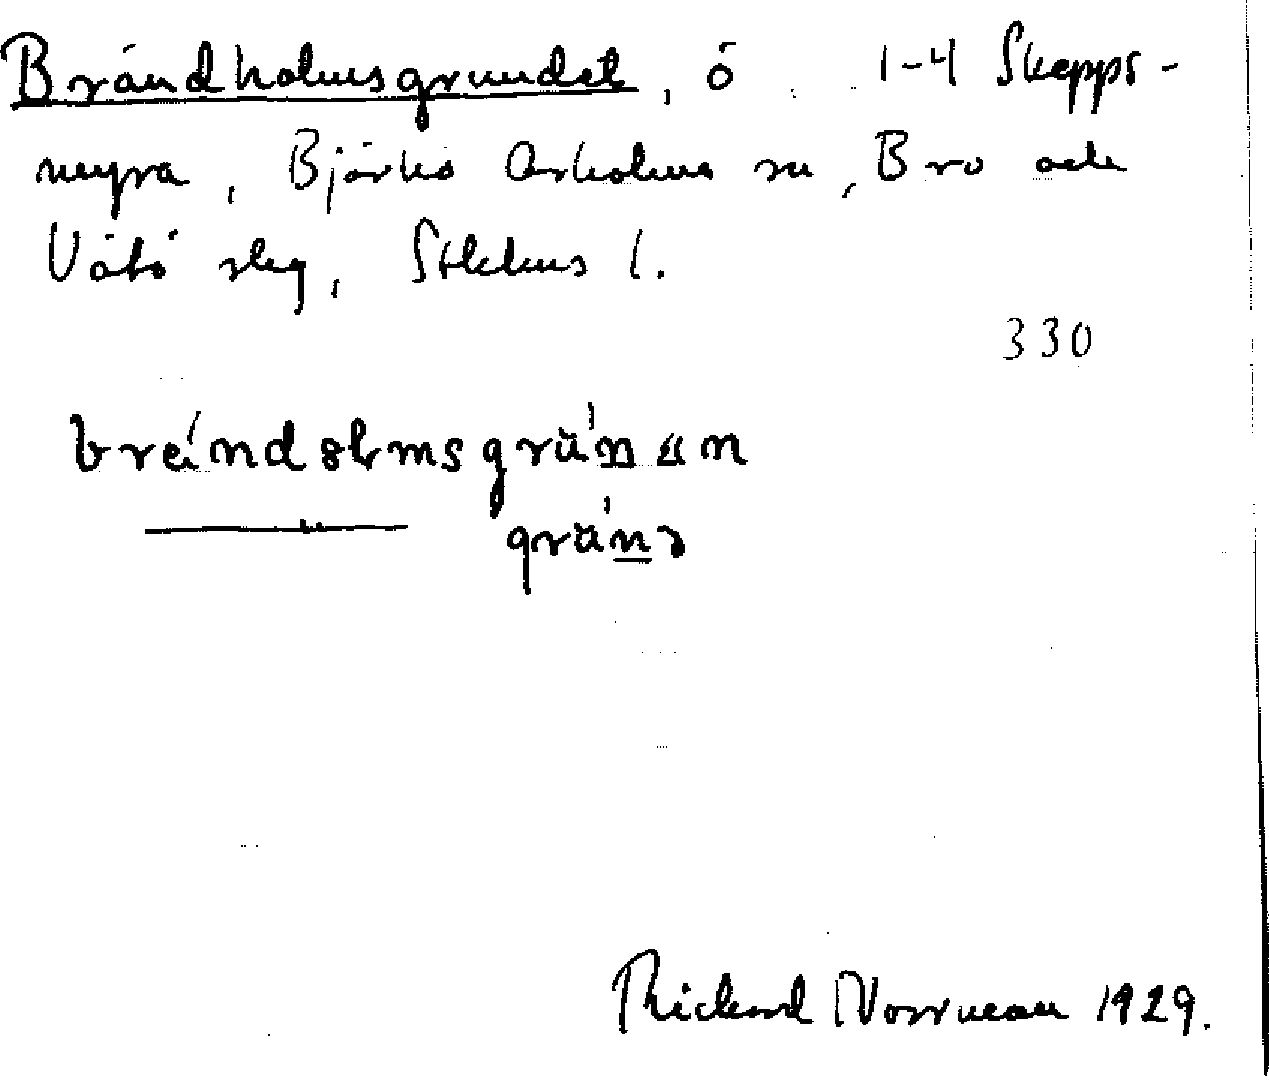 Brändholmsgrundet, ö 1-4 Skepps-
myra, Björkö Arholma sn, Bro och
Vätö slg, Sthlms l.
330
gränd
Rickard Norrman 1929.